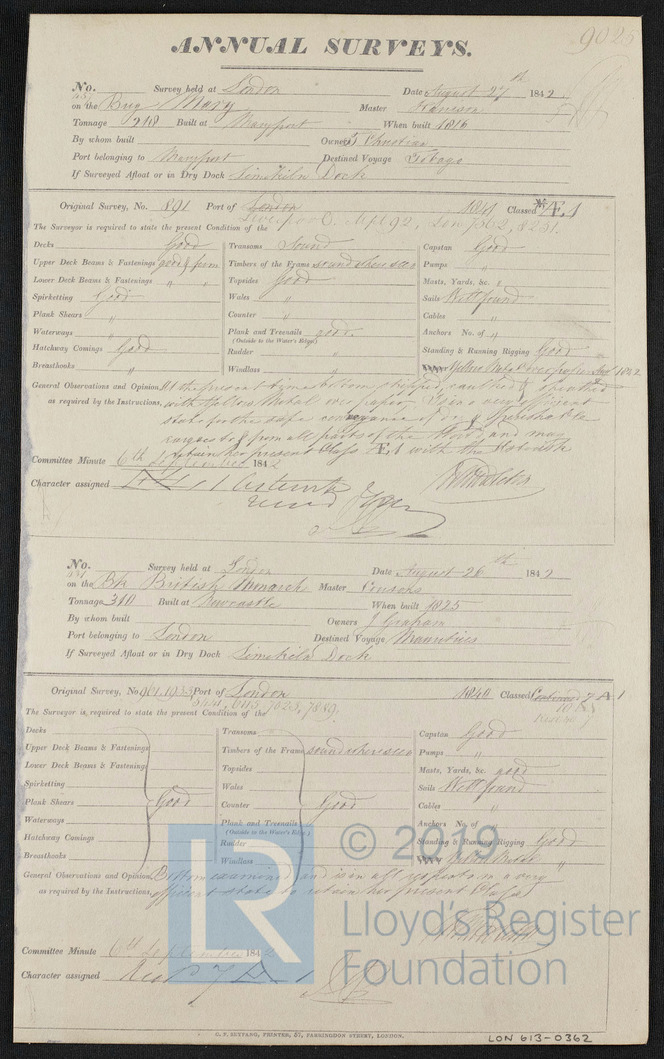 9025
ANNUAL SURVEYS.
No. Survey held at London Date August 27th 1842.
on the Brig Mary Master
Tonnage 248 Built at Maryport When built 1816
By whom built Owners J Christian
Port belonging to Maryport Destined Voyage Tobago
If Surveyed Afloat or in Dry Dock Limekiln Dock
Original Survey, No. 891 Port of London 1841 Classed *Æ 1
Liverpool. Sept 92, Lon 7362, 8251.
The Surveyor is required to state the present Condition of the
Decks Good Transoms Sound Capstan Good
Upper Deck Beams & Fastenings good & firm Timbers of the Frame sound where seen Pumps "
Lower Deck Beams & Fastenings " " Topsides Good Masts, Yards, &c. "
Spirketting Good Wales " Sails Well found
Plank Shears " Counter " Cables "
Waterways " Plank and Treenails good. Anchors No. of "
(Outside to the Water's Edge)
Hatchway Comings Good Rudder " Standing & Running Rigging Good
Breasthooks " Windlass " Yellow Metal over paper Augt 1842
General Observations and Opinion, At the present time bottom stripped, caulked & sheathed
as required by the Instructions, with Yellow Metal over paper. Is in a very efficient
state for the safe conveyance of dry & perishable
cargoes to & from all parts of the World, and may
retain her present Class Æ 1 with the Asterisk
Committee Minute 6th September 1842
Character assigned Æ 1
No. Survey held at London Date August 26th 1842
on the Bk British Monarch Master Cousens
Tonnage 310 Built at Newcastle When built 1825
By whom built Owners J Graham
Port belonging to London Destined Voyage Mauritius
If Surveyed Afloat or in Dry Dock Limekiln Dock
Original Survey, No. 961, 1033 Port of London 1840 Classed Continued 7 A 1
6441, 6113, 7623, 7889.
The Surveyor, is required to state the present Condition of the
Decks Transoms Capstan Good
Upper Deck Beams & Fastenings Timbers of the Frame sound where seen Pumps "
Lower Deck Beams & Fastenings Topsides Masts, Yards, &c. good
Spirketting Wales Sails Well found
Plank Shears Good Counter Good Cables "
Waterways Plank and Treenails Anchors No. of "
(Outside to the Water's Edge)
Hatchway Comings Rudder Standing & Running Rigging Good
Breasthooks Windlass Yellow Metal "
General Observations and Opinion, Bottom examined and is in all respects in a very
as required by the Instructions, efficient state to retain her present Class
Committee Minute 6th September 1842
Character assigned 7 A 1
LR © 2019
Lloyd's Register
Foundation
C. F. SEYFANG, PRINTER, 57, FARRINGDON STREET, LONDON.
LON 613-0362